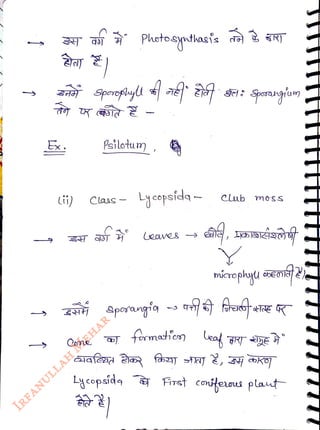 → इस वर्ग में Photosynthasis तने के द्वारा
होता है|
→ इनमें sporophyll की नहीं होती अतः sporangium
तने पर लगते हैं -
Ex. Psilotum,
(ii) Class - Lycopsida - Club moss
→ इस वर्ग में Leaves → छोटी, प्रकाशसंश्लेषी
microphyll कहलाती हैं|
→ इसमें sporangia → पत्ती की निचली सतह पर
→ Cone का formation Leaf द्वारा समूह में
व्यवस्थित होकर किया जाता है, इस कारण
Lycopsida को First coniferous plant
होते हैं|
IRFANULLAH MEHAR